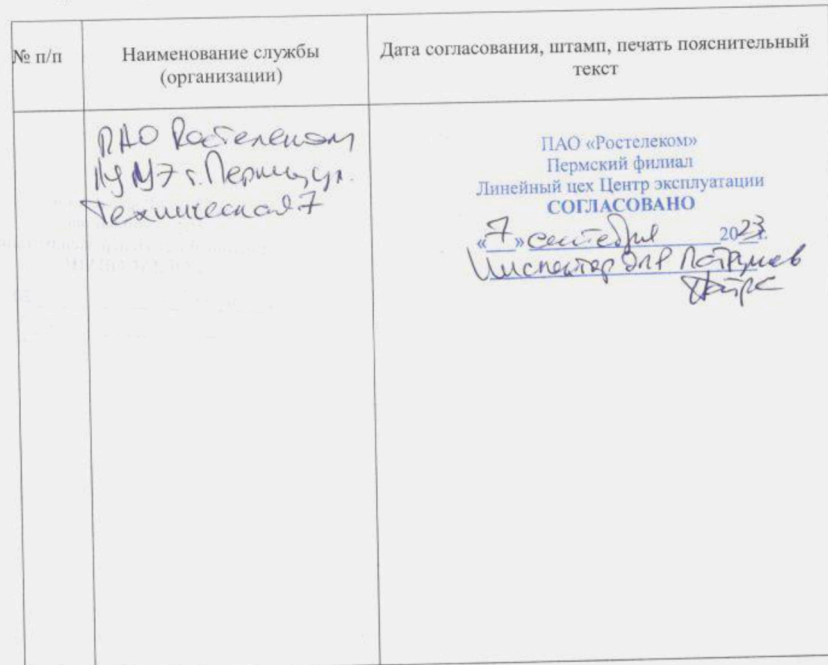 № п/п
Наименование службы
(организации)
Дата согласования, штамп, печать пояснительный
текст
ПАО Ростелеком
г. Пермь, ул.
Техническая 7
ПАО «Ростелеком»
Пермский филиал
Линейный цех Центр эксплуатации
СОГЛАСОВАНО
«7» сентября 2023г.
Инспектор